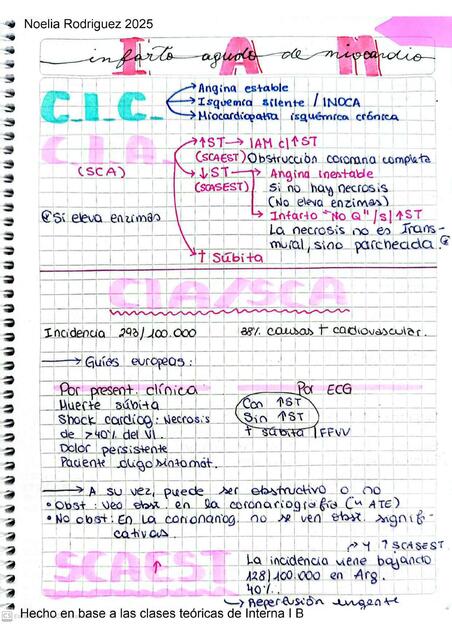 Noelia Rodriguez 2025
I A M
infarto agudo de miocardio
C.I.C. → Angina estable
→ Isquemia silente / INOCA
→ Miocardiopatía isquémica crónica
C.I.A.
(SCA)
↑ST → IAM c/↑ST
(SCAEST) Obstrucción coronaria completa
↓ST → Angina inestable
(SCASEST) Si no hay necrosis
(No eleva enzimas)
→ Infarto "No Q" /s/↑ST
Si eleva enzimas
La necrosis no es Trans-
mural, sino parcheada.
† Súbita
CIA/SCA
Incidencia 293/100.000 38% causas † cardiovascular.
→ Guías europeas:
Por present. clínica
Muerte súbita
Shock cardiog: Necrosis
de >40% del VI.
Dolor persistente
Paciente oligosintomát.
Por ECG
Con ↑ST
Sin ↑ST
† súbita | FFVV
→ A su vez, puede ser obstructivo o no
• Obst: veo obst. en la coronariografía (u ATE)
• No obst: En la coronariog. no se ven obst. signifi-
cativas.
SCAEST
↑
→ y ↑ SCASEST
La incidencia viene bajando
128/100.000 en Arg.
40%.
→ Reperfusión urgente
Hecho en base a las clases teóricas de Interna I B